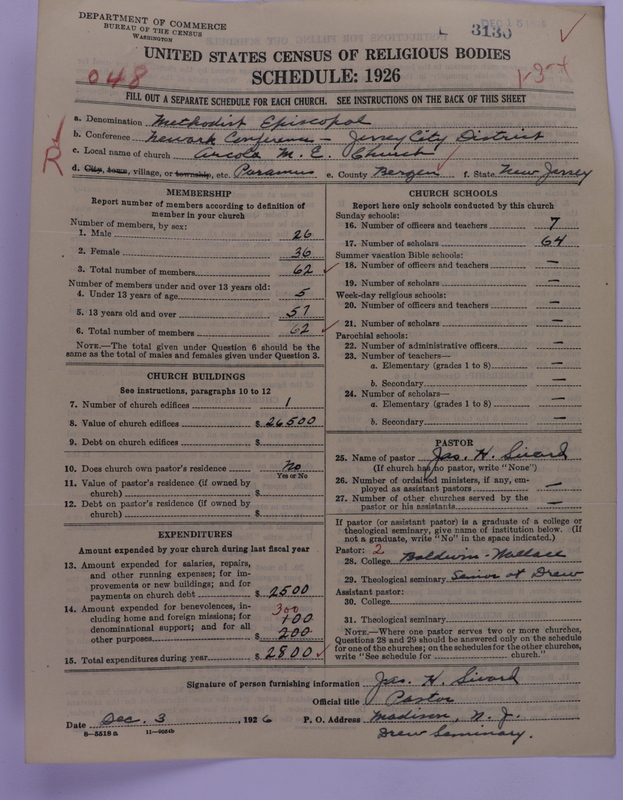 DEPARTMENT OF COMMERCE
BUREAU OF THE CENSUS
WASHINGTON
DEC 15
3130
1-3-4
UNITED STATES CENSUS OF RELIGIOUS BODIES
SCHEDULE: 1926
048
FILL OUT A SEPARATE SCHEDULE FOR EACH CHURCH. SEE INSTRUCTIONS ON THE BACK OF THIS SHEET
a. Denomination Methodist Episcopal
b. Conference Newark Conference - Jersey City District
c. Local name of church Arcola M. E. Church
R
d. City, town, village, or township, etc. Paramus e. County Bergen f. State New Jersey
MEMBERSHIP
Report number of members according to definition of
member in your church
Number of members, by sex:
1. Male 26
2. Female 36
3. Total number of members 62
Number of members under and over 13 years old:
4. Under 13 years of age 5
5. 13 years old and over 57
6. Total number of members 62
NOTE.—The total given under Question 6 should be the
same as the total of males and females given under Question 3.
CHURCH BUILDINGS
See instructions, paragraphs 10 to 12
7. Number of church edifices 1
8. Value of church edifices $ 26500
9. Debt on church edifices $
10. Does church own pastor's residence No
Yes or No
11. Value of pastor's residence (if owned by
church) $
12. Debt on pastor's residence (if owned by
church) $
EXPENDITURES
Amount expended by your church during last fiscal year
13. Amount expended for salaries, repairs,
and other running expenses; for im-
provements or new buildings; and for
payments on church debt $ 2500
14. Amount expended for benevolences, in-
cluding home and foreign missions; for
denominational support; and for all
other purposes
300
100
$ 200
15. Total expenditures during year $ 2800
CHURCH SCHOOLS
Report here only schools conducted by this church
Sunday schools:
16. Number of officers and teachers 7
17. Number of scholars 64
Summer vacation Bible schools:
18. Number of officers and teachers —
19. Number of scholars —
Week-day religious schools:
20. Number of officers and teachers —
21. Number of scholars —
Parochial schools:
22. Number of administrative officers —
23. Number of teachers—
a. Elementary (grades 1 to 8) —
b. Secondary —
24. Number of scholars—
a. Elementary (grades 1 to 8) —
b. Secondary —
PASTOR
25. Name of pastor Jas. H. Sivard
(If church has no pastor, write "None")
26. Number of ordained ministers, if any, em-
ployed as assistant pastors —
27. Number of other churches served by the
pastor or his assistants —
If pastor (or assistant pastor) is a graduate of a college or
theological seminary, give name of institution below. (If
not a graduate, write "No" in the space indicated.)
Pastor: 2
28. College Baldwin-Wallace
29. Theological seminary Senior at Drew
Assistant pastor:
30. College
31. Theological seminary
NOTE.—Where one pastor serves two or more churches,
Questions 28 and 29 should be answered only on the schedule
for one of the churches; on the schedules for the other churches,
write "See schedule for church."
Signature of person furnishing information Jas. H. Sivard
Official title Pastor
Date Dec. 3, 1926 P. O. Address Madison, N. J.
Drew Seminary.
8-5518a 11-9054b